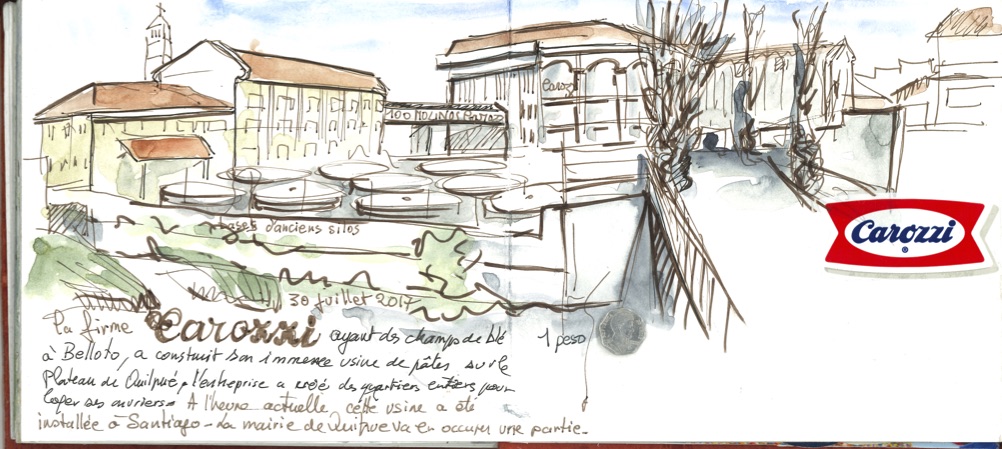 Caroz
100 MOLINOS
bases d'anciens silos
30 juillet 2017
La firme Carozzi ayant des champs de blé
1 peso
à Belloto, a construit son immense usine de pâtes sur le
Plateau de Quilpué, l'entreprise a créé des quartiers entiers pour
loger ses ouvriers. A l'heure actuelle cette usine a été
installée à Santiago - La mairie de Quilpue va en occuper une partie -
Carozzi
®